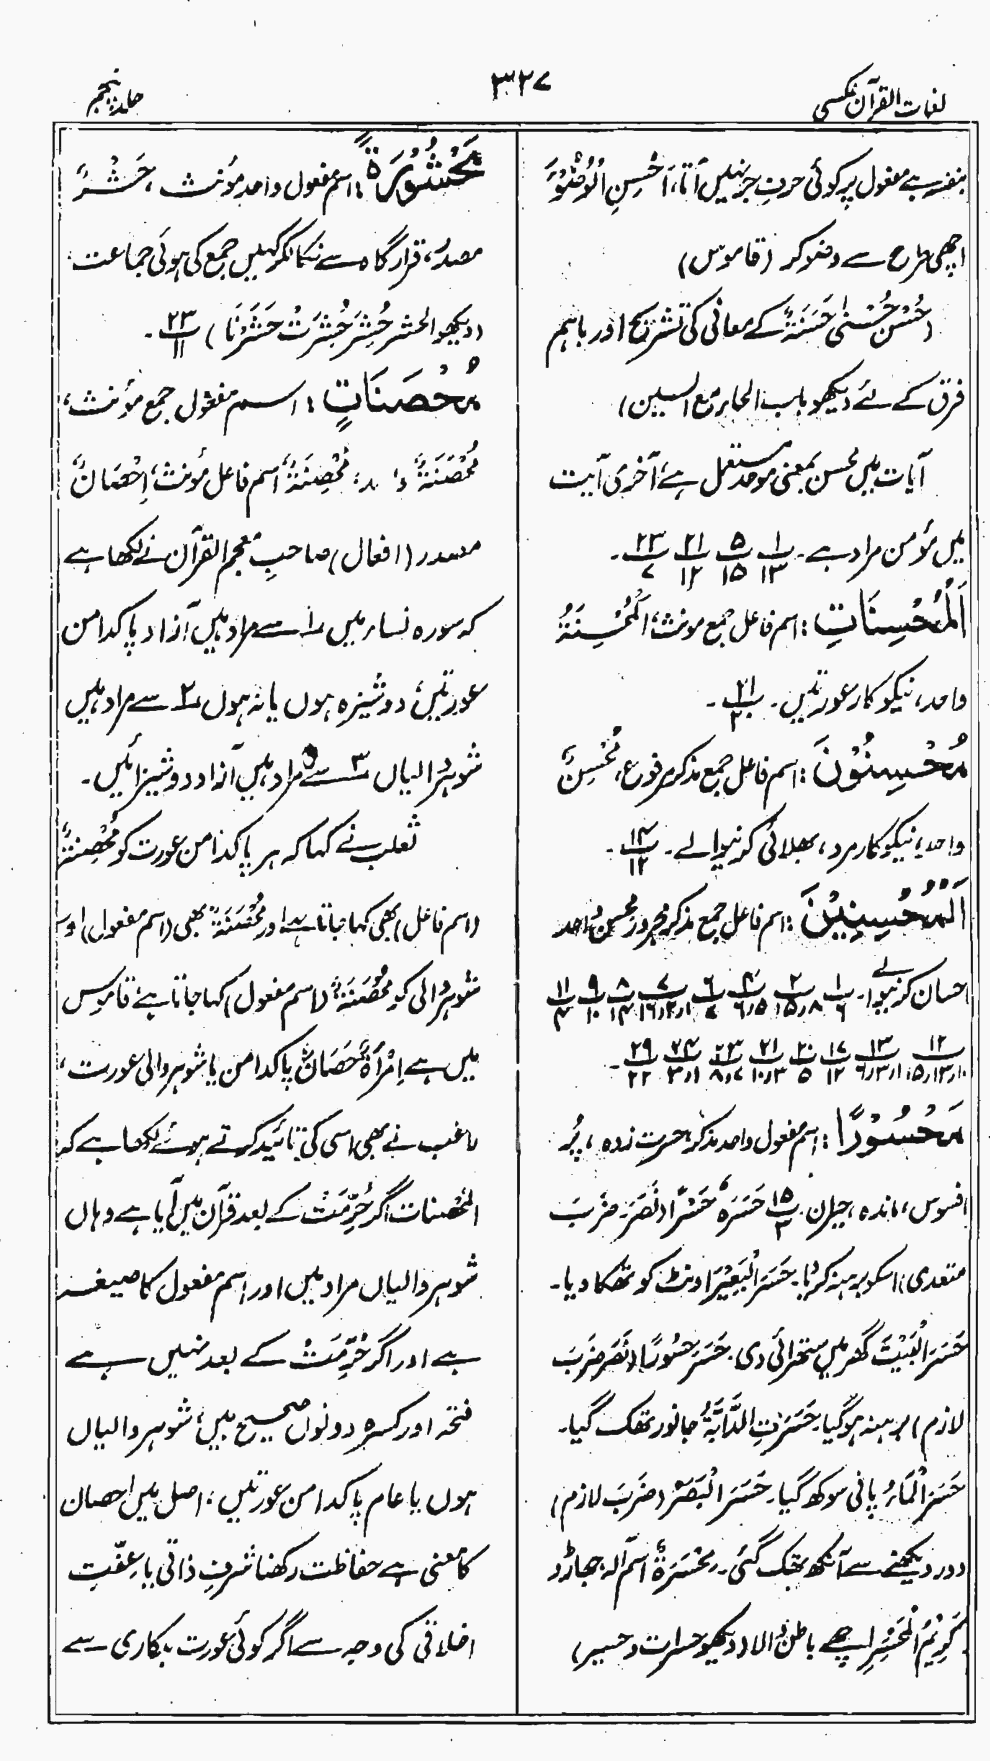 لغات القرآن عکسی
۳۲۷
جلد پنجم
بنفسہ ہے مفعول پر کوئی حرفِ جر نہیں آتا، اَحْسِنِ الْوُضُوْءَ
اچھی طرح سے وضو کر (قاموس)
(حُسْنٌ حُسْنٰی حَسَنَۃٌ کے معانی کی تشریح اور باہم
فرق کے لئے دیکھو باب الحاء مع السین)
آیات میں محسن بمعنی موحد مستعمل ہے، آخری آیت
میں مؤمن مراد ہے۔ ۱/۱۳ ۵/۱۵ ۲۱/۱۲ ۲۳/۷ ۔
اَلْمُحْسِنَاتِ: اسم فاعل جمع مونث، اَلْمُحْسِنَۃُ
واحد، نیکو کار عورتیں۔ ۲۱/۲۰ ۔
مُحْسِنُوْنَ: اسم فاعل جمع مذکر مرفوع، مُحْسِنٌ
واحد، نیکو کار مرد، بھلائی کرنیوالے۔ ۱۴/۱۲ ۔
اَلْمُحْسِنِیْنَ: اسم فاعل جمع مذکر مجرور محسن واحد
احسان کرنیوالے۔ ۱/۶ ۲/۸،۱۵ ۴/۵،۶ ۶/۷ ۷/۱،۲،۱۶ ۸/۱۴ ۹/۱۰ ۱۱/۴
۱۲/۱۰،۱۳،۱۵ ۱۳/۱،۳،۶ ۱۷/۱۲ ۲۰/۵ ۲۱/۳،۱۰ ۲۳/۷،۸ ۲۴/۱،۳ ۲۹/۲۲ ۔
مَحْسُوْرًا: اسم مفعول واحد مذکر، حسرت زدہ، پُر
افسوس، ماندہ، حیران۔ ۱۵/۳ حَسَرَہٗ حَسْرًا (نَصَرَ۔ ضَرَبَ
متعدی) اسکو برہنہ کر دیا۔ حَسَرَ الْبَعِیْرَ اونٹ کو تھکا دیا۔
حَسَرَ الْبَیْتَ گھر میں ستھرائی دی۔ حَسَرَ حُسُوْرًا (نَصَرَ ضَرَبَ
لازم) برہنہ ہوگیا۔ حَسَرَتِ الدَّابَّۃُ جانور تھک گیا۔
حَسَرَ الْمَاءُ پانی سوکھ گیا۔ حَسَرَ الْبَصَرُ (ضَرَبَ لازم)
دور دیکھنے سے آنکھ تھک گئی۔ مِحْسَرَۃٌ اسم آلہ جھاڑو
کَرِیْمُ الْمَحْسَرِ اچھے باطن والا (دیکھو حسرات و حسیر)
مَحْشُوْرَۃً: اسم مفعول واحد مؤنث، حَشْرٌ
مصدر، قرار گاہ سے نکالکر کہیں جمع کی ہوئی جماعت
(دیکھو الحشر حُشِرَ حُشِرَتْ حَشَرْنَا) ۲۳/۱۱ ۔
مُحْصَنَاتٍ: اسم مفعول جمع مؤنث،
مُحْصَنَۃٌ مُحْصِنَۃٌ اسم فاعل مؤنث، اِحْصَانٌ
مصدر (افعال) صاحبِ معجم القرآن نے لکھا ہے
کہ سورہ نساء میں ۱ سے مراد ہیں آزاد پاکدامن
عورتیں، دوشیزہ ہوں یا نہ ہوں ۲ سے مراد ہیں
شوہر والیاں ۳ سے مراد ہیں آزاد دوشیزائیں۔
ثعلب نے کہا کہ ہر پاکدامن عورت کو مُحْصِنَۃٌ
(اسم فاعل) بھی کہا جاتا ہے اور مُحْصَنَۃٌ بھی (اسم مفعول) اور
شوہر والی کو مُحْصَنَۃٌ (اسم مفعول) کہا جاتا ہے قاموس
میں ہے اِمْرَأَۃٌ حَصَانٌ پاکدامن یا شوہر والی عورت،
راغب نے بھی اسی کی تائید کرتے ہوئے لکھا ہے کہ
الْمُحْصَنَات اگر حُرِّمَتْ کے بعد قرآن میں آیا ہے وہاں
شوہر والیاں مراد ہیں اور اسم مفعول کا صیغہ
ہے اور اگر حُرِّمَتْ کے بعد نہیں ہے
فتحہ اور کسرہ دونوں صحیح ہیں، شوہر والیاں
ہوں یا عام پاکدامن عورتیں، اصل میں احصان
کا معنی ہے حفاظت رکھنا شرفِ ذاتی یا عفّتِ
اخلاقی کی وجہ سے اگر کوئی عورت بدکاری سے